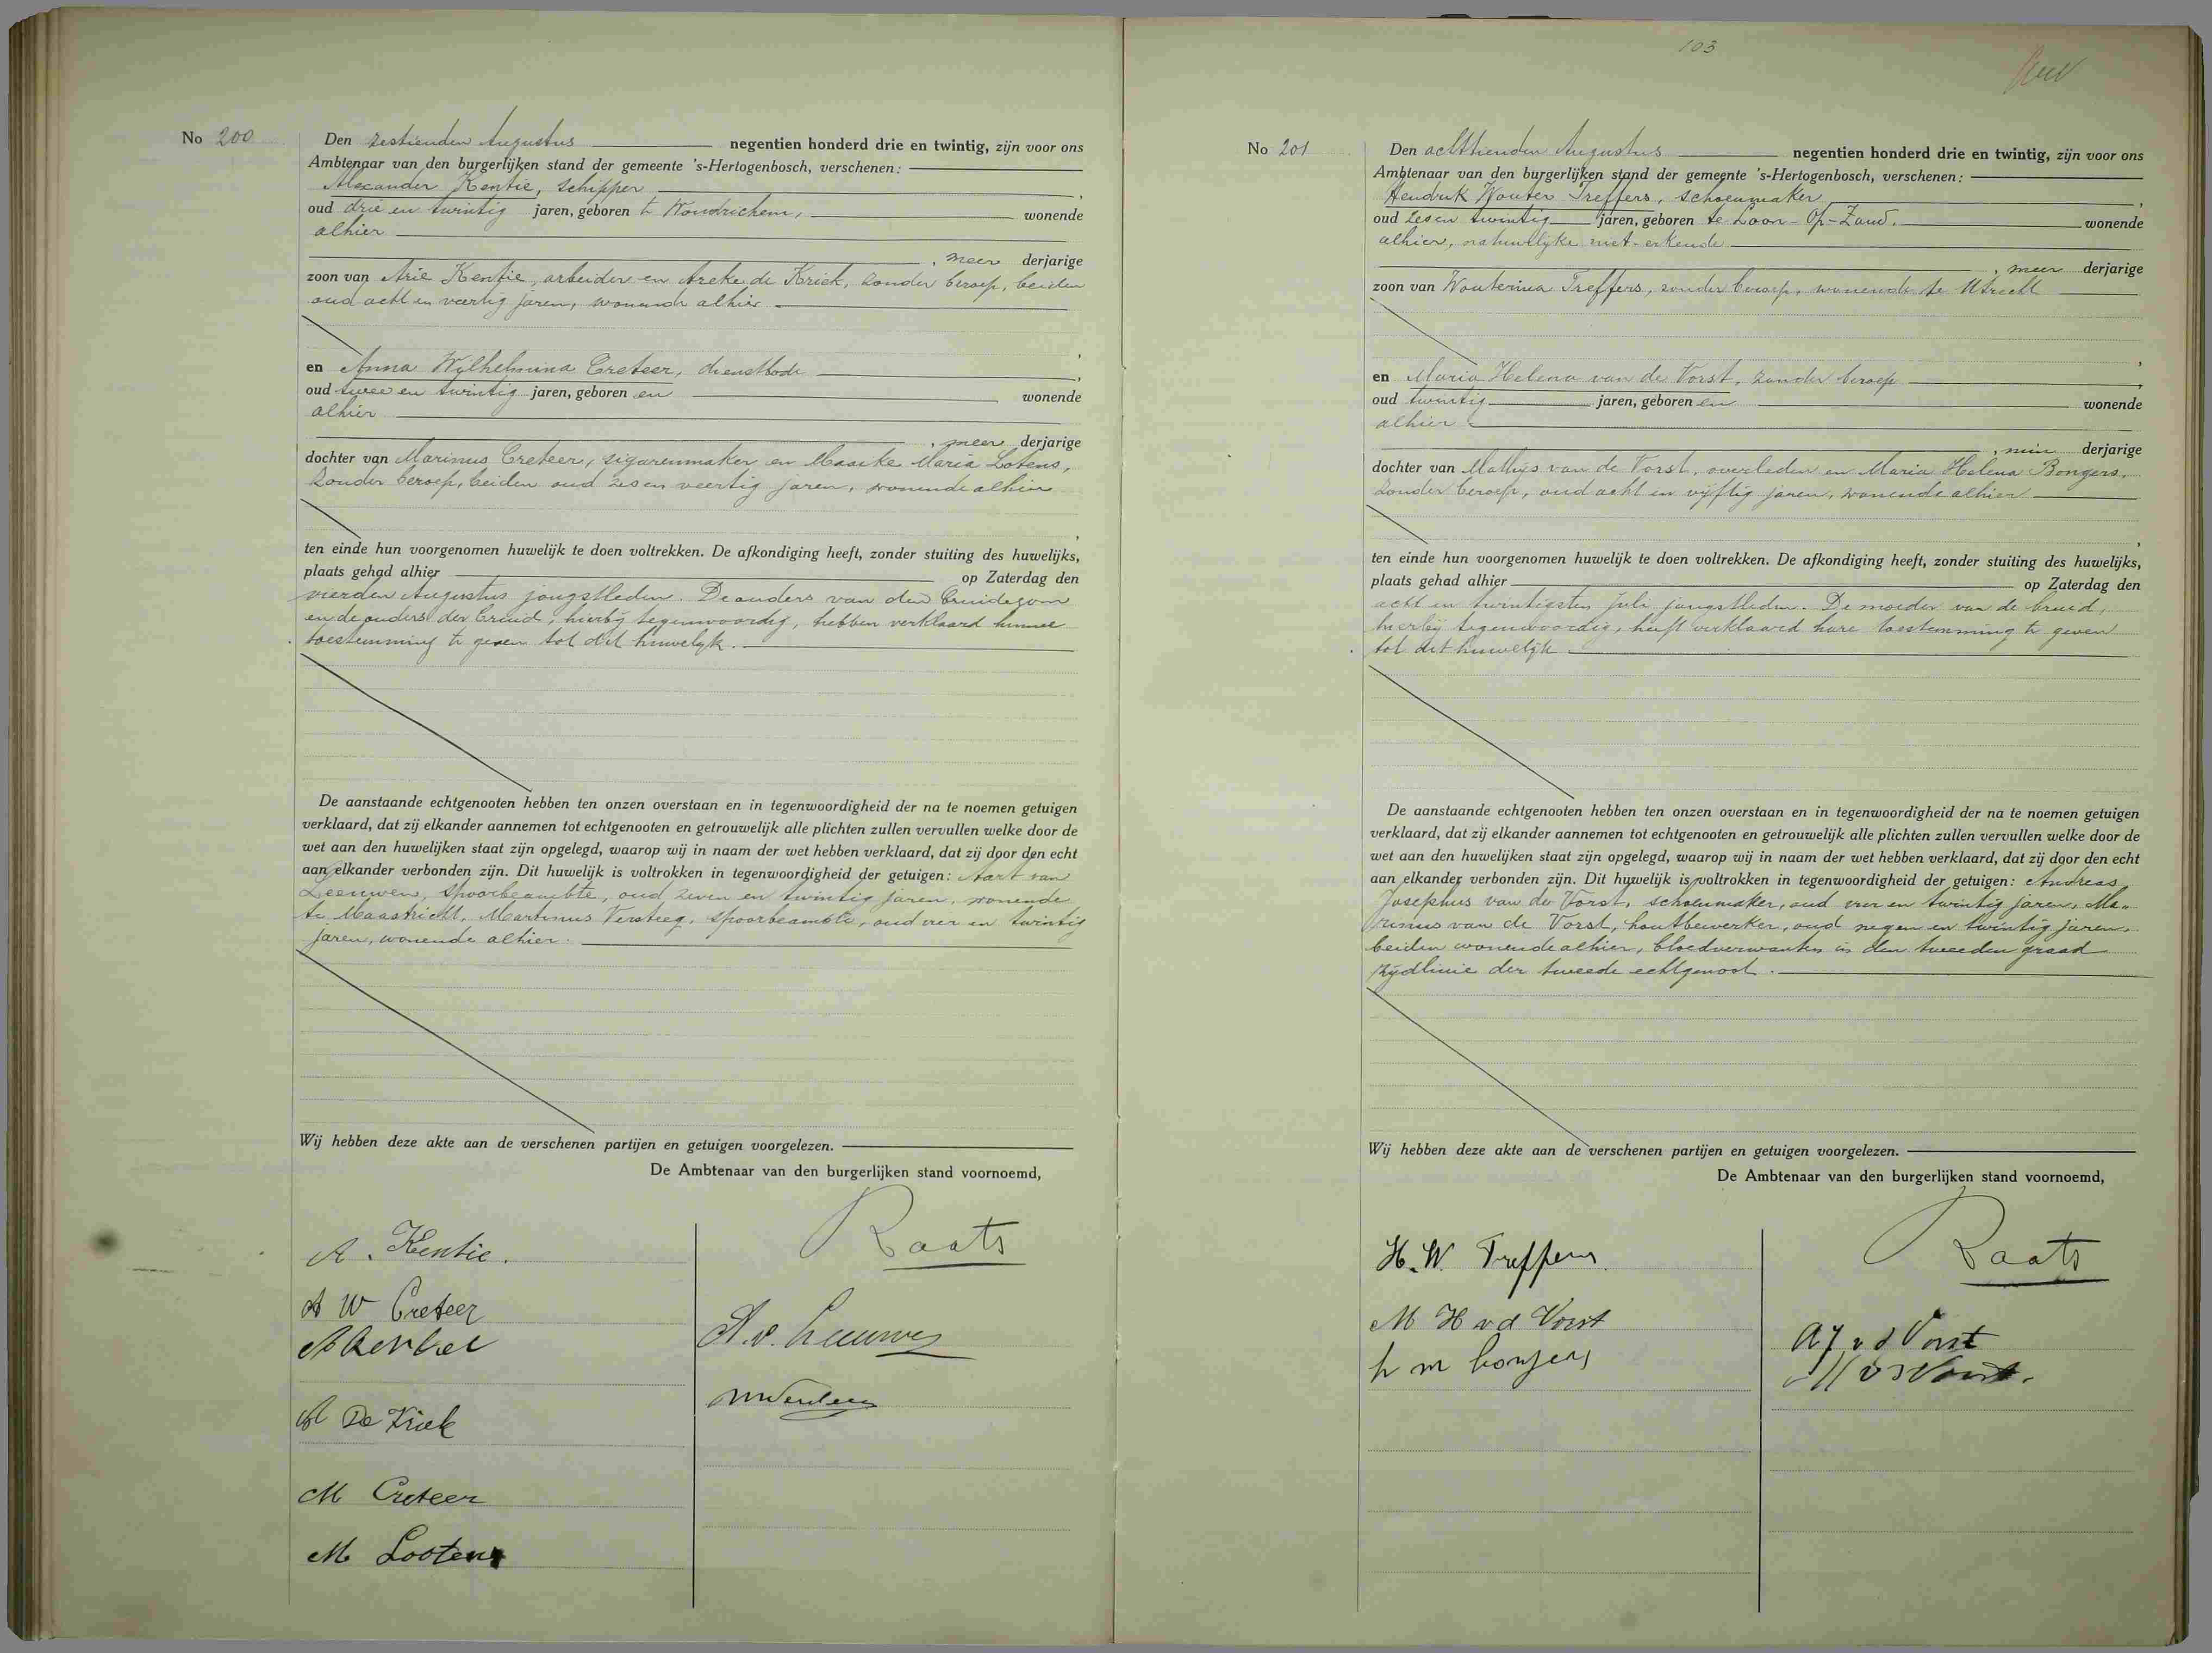 No 200
Den zestienden Augustus negentien honderd drie en twintig, zijn voor ons
Ambtenaar van den burgerlijken stand der gemeente 's-Hertogenbosch, verschenen:
Alexander Kentie, schipper,
oud drie en twintig jaren, geboren te Woudrichem, wonende
alhier
, meer derjarige
zoon van Arie Kentie, arbeider en Areke de Kriek, zonder beroep, beiden
oud acht en veertig jaren, wonende alhier
,
en Anna Wilhelmina Creteer, dienstbode,
oud twee en twintig jaren, geboren en wonende
alhier
, meer derjarige
dochter van Marinus Creteer, sigarenmaker en Maaike Maria Lotens,
zonder beroep, beiden oud zes en veertig jaren, wonende alhier
,
ten einde hun voorgenomen huwelijk te doen voltrekken. De afkondiging heeft, zonder stuiting des huwelijks,
plaats gehad alhier op Zaterdag den
vierden Augustus jongstleden. De ouders van den bruidegom
en de ouders der bruid, hierbij tegenwoordig, hebben verklaard hunne
toestemming te geven tot dit huwelijk.
De aanstaande echtgenooten hebben ten onzen overstaan en in tegenwoordigheid der na te noemen getuigen
verklaard, dat zij elkander aannemen tot echtgenooten en getrouwelijk alle plichten zullen vervullen welke door de
wet aan den huwelijken staat zijn opgelegd, waarop wij in naam der wet hebben verklaard, dat zij door den echt
aan elkander verbonden zijn. Dit huwelijk is voltrokken in tegenwoordigheid der getuigen: Aart van
Leeuwen, spoorbeambte, oud zeven en twintig jaren, wonende
te Maastricht, Martinus Versteeg, spoorbeambte, oud vier en twintig
jaren, wonende alhier.
Wij hebben deze akte aan de verschenen partijen en getuigen voorgelezen.
De Ambtenaar van den burgerlijken stand voornoemd,
A. Kentie.
Raats
A W Creteer
A. v. Leeuwen
A De Kriek
M Creteer
M Lootens
103
No 201
Den achttienden Augustus negentien honderd drie en twintig, zijn voor ons
Ambtenaar van den burgerlijken stand der gemeente 's-Hertogenbosch, verschenen:
Hendrik Wouter Treffers, schoenmaker,
oud zes en twintig jaren, geboren te Loon-Op-Zand, wonende
alhier, natuurlijke niet-erkende
, meer derjarige
zoon van Wouterina Treffers, zonder beroep, wonende te Utrecht
,
en Maria Helena van de Vorst, zonder beroep,
oud twintig jaren, geboren en wonende
alhier
, min derjarige
dochter van Mathijs van de Vorst, overleden en Maria Helena Bongers,
zonder beroep, oud acht en vijftig jaren, wonende alhier
,
ten einde hun voorgenomen huwelijk te doen voltrekken. De afkondiging heeft, zonder stuiting des huwelijks,
plaats gehad alhier op Zaterdag den
acht en twintigsten Juli jongstleden. De moeder van de bruid,
hierbij tegenwoordig, heeft verklaard hare toestemming te geven
tot dit huwelijk
De aanstaande echtgenooten hebben ten onzen overstaan en in tegenwoordigheid der na te noemen getuigen
verklaard, dat zij elkander aannemen tot echtgenooten en getrouwelijk alle plichten zullen vervullen welke door de
wet aan den huwelijken staat zijn opgelegd, waarop wij in naam der wet hebben verklaard, dat zij door den echt
aan elkander verbonden zijn. Dit huwelijk is voltrokken in tegenwoordigheid der getuigen: Andreas
Josephus van de Vorst, schoenmaker, oud vier en twintig jaren, Ma„
rinus van de Vorst, houtbewerker, oud negen en twintig jaren,
beiden wonende alhier, bloedverwanten in den tweeden graad
zijdlinie der tweede echtgenoot.
Wij hebben deze akte aan de verschenen partijen en getuigen voorgelezen.
De Ambtenaar van den burgerlijken stand voornoemd,
H. W. Treffers
Raats
M H v d Vorst
A J v d Vorst
M v d Vorst.